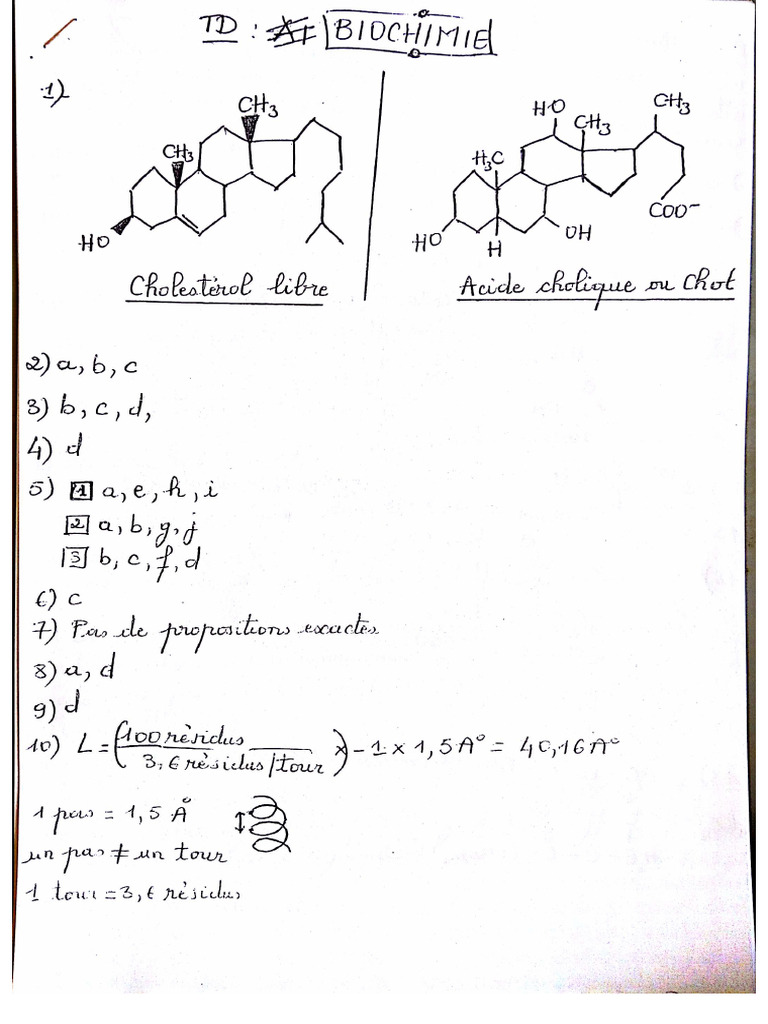 TD : BIOCHIMIE
1)
CH3
CH3
HO
Cholestérol libre
HO
CH3
CH3
H3C
COO-
HO
H
OH
Acide cholique ou Chot
2) a, b, c
3) b, c, d,
4) d
5) 1 a, e, h, i
2 a, b, g, j
3 b, c, f, d
6) c
7) Pas de propositions exactes
8) a, d
9) d
10) L = (100 résidus / 3,6 résidus/tour) x - 1 x 1,5 A° = 40,16 A°
1 pas = 1,5 Å
un pas ≠ un tour
1 tour = 3,6 résidus